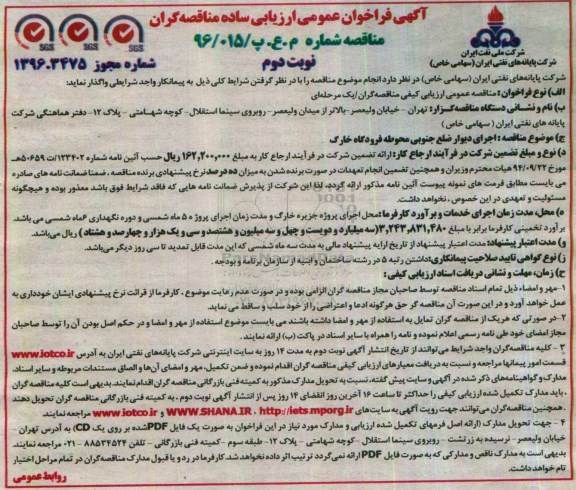 آگهی فراخوان عمومی ارزیابی ساده مناقصه‌گران
مناقصه شماره م.ع.پ/۹۶/۰۱۵
نوبت دوم
شماره مجوز ۱۳۹۶.۳۴۷۵
SGS SGS SGS
شرکت ملی نفت ایران
شرکت پایانه‌های نفتی ایران (سهامی خاص)
شرکت پایانه‌های نفتی ایران (سهامی خاص) در نظر دارد انجام موضوع مناقصه را با در نظر گرفتن شرایط کلی ذیل به پیمانکار واجد شرایطی واگذار نماید:
الف) نوع فراخوان: مناقصه عمومی ارزیابی کیفی مناقصه‌گران/یک مرحله‌ای
ب) نام و نشانی دستگاه مناقصه‌گزار: تهران - خیابان ولیعصر-بالاتر از میدان ولیعصر- روبروی سینما استقلال- کوچه شهامتی - پلاک ۱۲- دفتر هماهنگی شرکت
پایانه های نفتی ایران (سهامی خاص)
ج) موضوع مناقصه: اجرای دیوار ضلع جنوبی محوطه فرودگاه خارک
د) نوع و مبلغ تضمین شرکت در فرآیند ارجاع کار: ارائه تضمین شرکت در فرآیند ارجاع کار به مبلغ ۱۶۲,۲۰۰,۰۰۰ ریال حسب آئین نامه شماره ۱۲۳۴۰۲/ت ۵۰۶۵۹هـ
مورخ ۹۴/۰۹/۲۲ هیات محترم وزیران و همچنین تضمین انجام تعهدات در صورت برنده شدن به میزان ده درصد نرخ پیشنهادی برنده مناقصه . ضمنا ضمانت نامه های صادره
می بایست مطابق فرمت های نمونه پیوست آئین نامه مذکور ارائه گردد، لذا این شرکت از پذیرش ضمانت نامه هایی که فاقد شرایط فوق باشد معذور بوده و هیچگونه
مسئولیت و تعهدی در این خصوص ، نخواهد داشت.
ه) محل، مدت زمان اجرای خدمات و برآورد کارفرما: محل اجرای پروژه جزیره خارک و مدت زمان اجرای پروژه ۵ ماه شمسی و دوره نگهداری ۶ماه شمسی می باشد.
برآورد تخمینی کارفرما برابر با مبلغ ۳,۲۴۳,۸۳۱,۴۸۰ (سه میلیارد و دویست و چهل و سه میلیون و هشتصد و سی و یک هزار و چهارصد و هشتاد) ریال می‌باشد.
و) مدت اعتبار پیشنهاد: مدت اعتبار پیشنهاد از تاریخ ارایه پیشنهاد مالی به مدت سه ماه شمسی که این مدت قابل تمدید تا سی روز دیگر می‌باشد.
ز) نوع گواهی تایید صلاحیت پیمانکاری: داشتن رتبه ۵ در رشته ساختمان و ابنیه از سازمان برنامه و بودجه .
ح) زمان، مهلت و نشانی دریافت اسناد ارزیابی کیفی :
۱-مهر و امضاء ذیل تمام اسناد مناقصه توسط صاحبان مجاز مناقصه گران الزامی بوده و در صورت عدم رعایت موضوع ، کارفرما از قرائت نرخ پیشنهادی ایشان خودداری به
عمل خواهد آورد و در این صورت آن مناقصه گر حق هرگونه ادعا و اعتراضی را از خود سلب و ساقط می نماید.
۲-در صورتی که هریک از مناقصه گران تمایل به استفاده از مهر و امضا داشته باشند می بایست موضوع استفاده از مهر و امضا و در حکم اصل بودن آن را توسط صاحبان
مجاز امضای خود طی نامه رسمی اعلام نموده و نامه را همراه با سایر اسناد در پاکت (ب) ارائه نمایند.
۳ - کلیه مناقصه‌گران واجد شرایط می‌توانند از تاریخ انتشار آگهی نوبت دوم به مدت ۱۴ روز به سایت اینترنتی شرکت پایانه‌های نفتی ایران به آدرس www.iotco.ir
قسمت امور پیمانها مراجعه و نسبت به دریافت معیارهای ارزیابی کیفی مناقصه‌گران اقدام نموده و ضمن تکمیل، مهر و امضای آن‌ها و الصاق مستندات مربوطه و سایر اسناد.
مدارک و گواهینامه‌های ذکر شده در آگهی و سایت پیش گفته، نسبت به تحویل مدارک مذکور به کمیته فنی بازرگانی مناقصه‌گران اقدام نمایند. بدیهی است کلیه مناقصه گران
، باید مدارک تکمیل شده ارزیابی کیفی را حداکثر تا ساعت ۱۶ آخرین روز انقضای ۱۴ روز پس از انتشار آگهی نوبت دوم ، به کمیته فنی بازرگانی مناقصه‌گران تحویل دهند
. همچنین مناقصه‌گران می‌توانند جهت رویت آگهی به سایت‌های http://iets.mporg.ir ، WWW.SHANA.IR و www.iotco.ir مراجعه نمایند.
۴ - جهت تحویل مدارک (ارائه اصل فرمهای تکمیل شده ارزیابی و مدارک مورد نیاز در این فراخوان به صورت یک فایل PDFشده بر روی یک CD) به آدرس تهران -
خیابان ولیعصر - نرسیده به زرتشت - روبروی سینما استقلال -کوچه شهامتی - پلاک ۱۲-طبقه سوم -کمیته فنی بازرگانی - تلفن ۸۸۵۳۴۵۲۴ - ۰۲۱ مراجعه نمایند.
بدیهی است به مدارک ناقص و مدارکی که به صورت فایل PDF ارائه نمی‌گردد ترتیب اثر داده نخواهد شد. کارفرما در رد و یا قبول مدارک مناقصه‌گران در تمام مراحل اختیار
تام خواهد داشت.
روابط عمومی